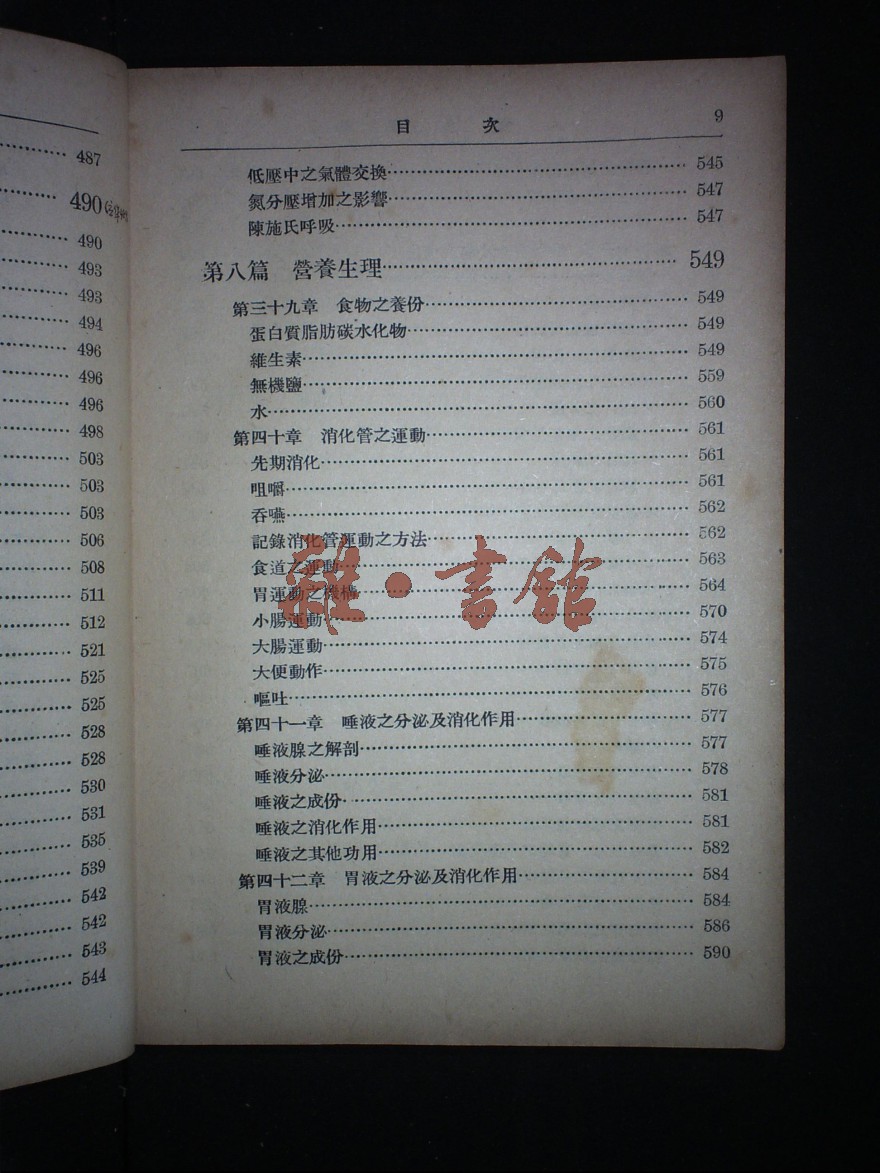 487
490
490
493
493
494
496
496
496
498
503
503
503
506
508
511
512
521
525
525
528
528
530
531
535
539
542
542
543
544
目 次 9
低壓中之氣體交換 545
氮分壓增加之影響 547
陳施氏呼吸 547
第八篇 營養生理 549
第三十九章 食物之養份 549
蛋白質脂肪碳水化物 549
維生素 549
無機鹽 559
水 560
第四十章 消化管之運動 561
先期消化 561
咀嚼 561
吞嚥 562
記錄消化管運動之方法 562
食道之運動 563
胃運動之機構 564
小腸運動 570
大腸運動 574
大便動作 575
嘔吐 576
第四十一章 唾液之分泌及消化作用 577
唾液腺之解剖 577
唾液分泌 578
唾液之成份 581
唾液之消化作用 581
唾液之其他功用 582
第四十二章 胃液之分泌及消化作用 584
胃液腺 584
胃液分泌 586
胃液之成份 590
雜·書館